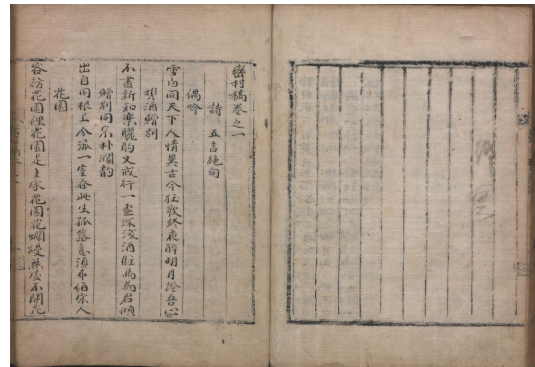 村稿卷之一
詩 五言絶句
偶吟
雪白同天下人情異古今狂歌終夜醉明月證吾心
携酒贈別
不盡新知樂驪駒又戒行一盃深淺酒駐馬為君傾
贈別同宗朴瀾韵
出自同根上今派一室合此生孤露
花園
客訪花園裡花園是主家花園花爛熳無處不開花